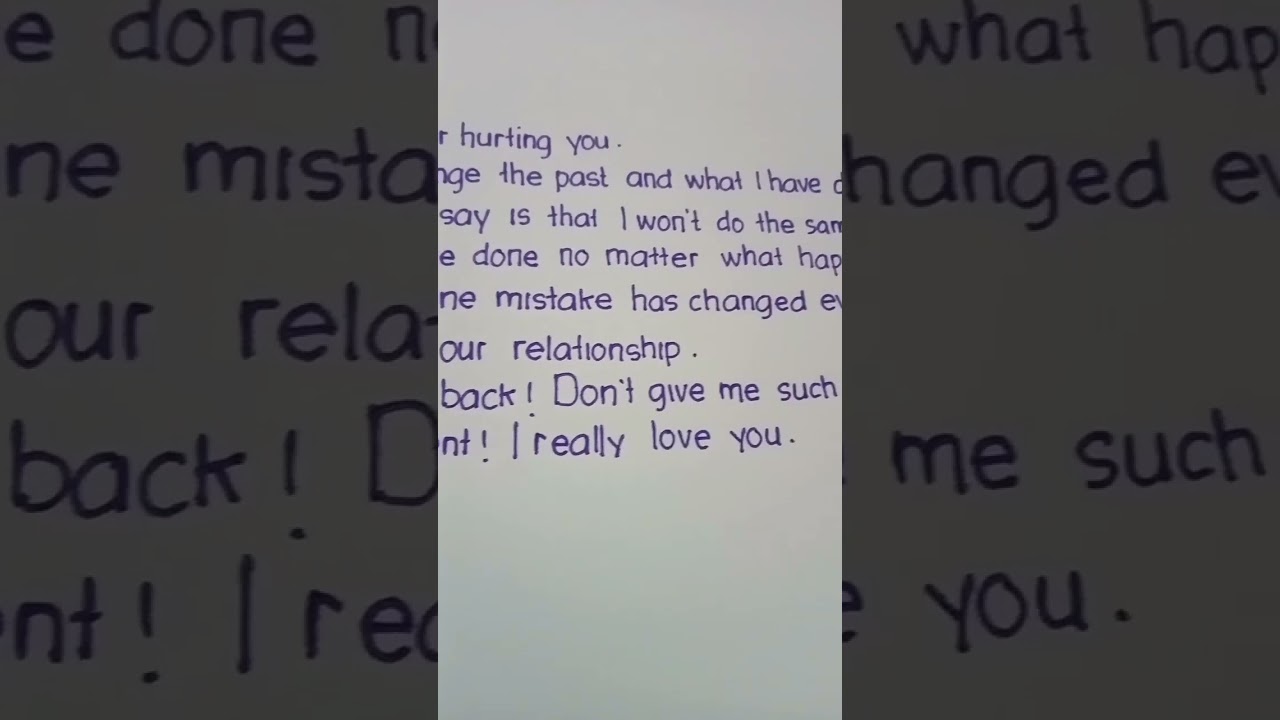 r hurting you.
nge the past and what I have d
say is that I won't do the sam
e done no matter what hap
ne mistake has changed ev
our relationship.
back! Don't give me such
nt! I really love you.